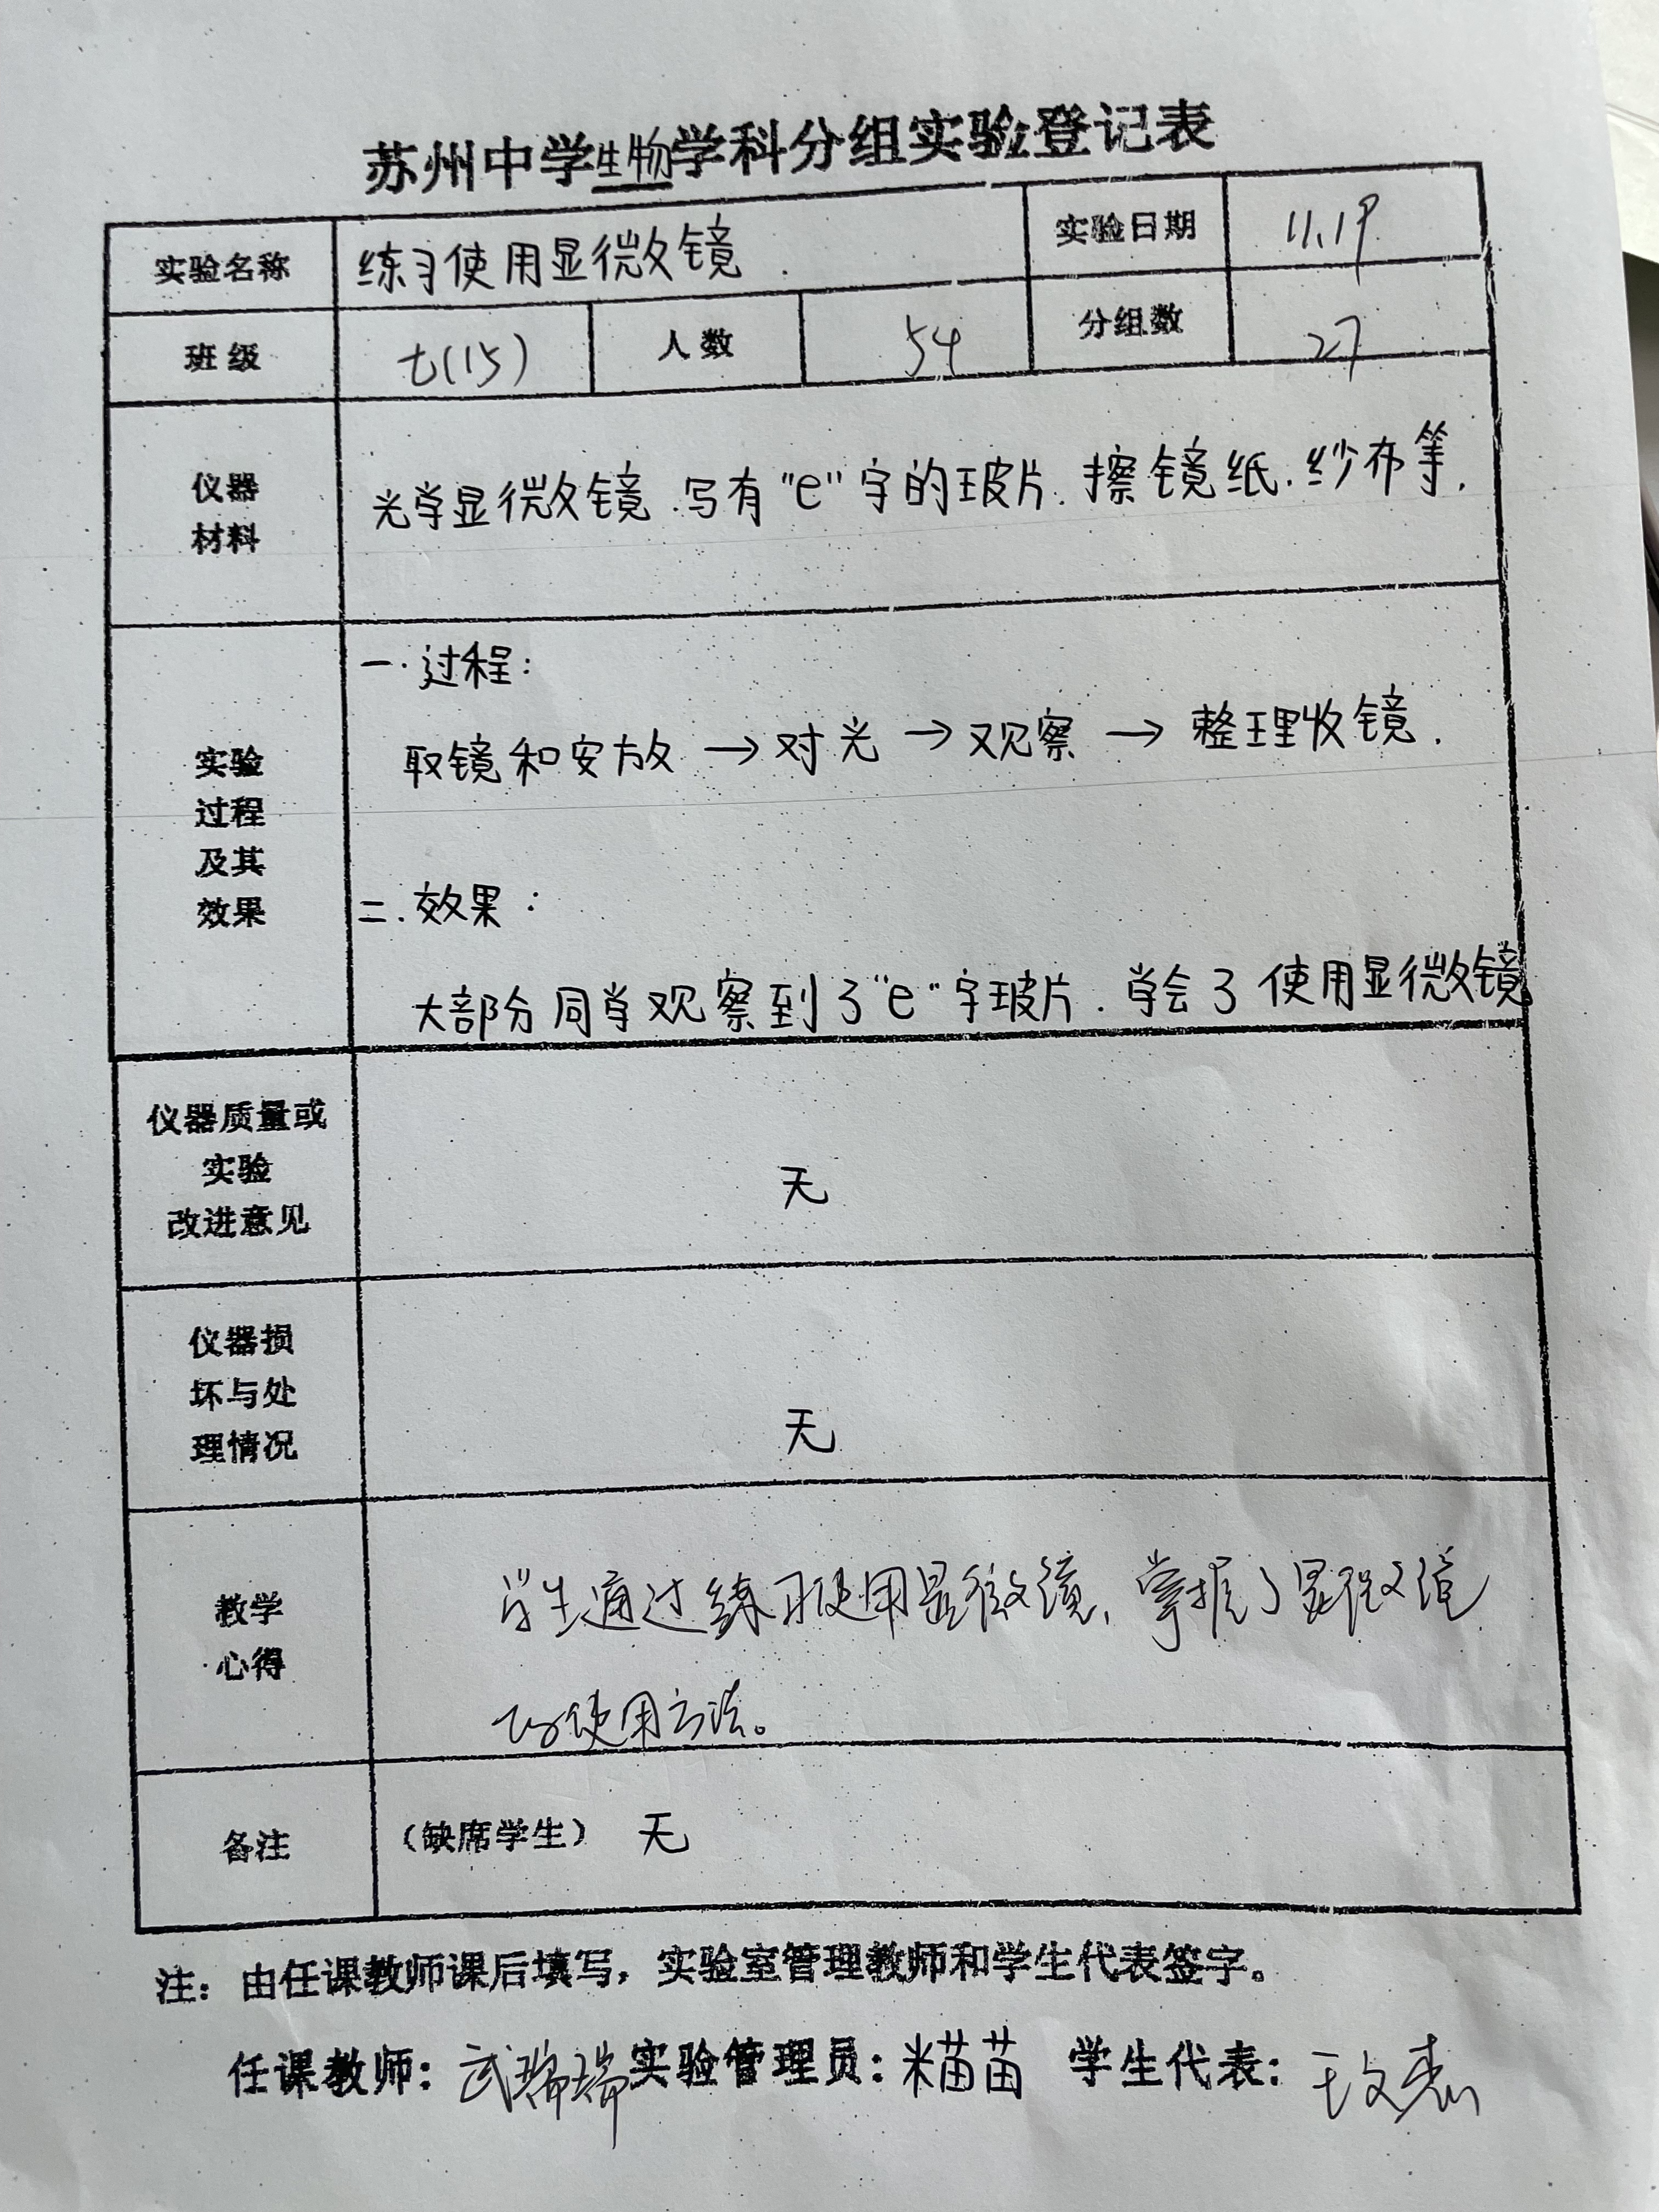 苏州中学生物学科分组实验登记表
实验名称 练习使用显微镜 实验日期 11.19
班级 七(15) 人数 54 分组数 27
仪器
材料
光学显微镜.写有"e"字的玻片.擦镜纸.纱布等.
实验
过程
及其
效果
一.过程:
取镜和安放→对光→观察→整理收镜.
二.效果:
大部分同学观察到了"e"字玻片.学会了使用显微镜
仪器质量或
实验
改进意见
无
仪器损
坏与处
理情况
无
教学
心得
学生通过练习使用显微镜、掌握了显微镜
的使用方法。
备注 (缺席学生) 无
注：由任课教师课后填写，实验室管理教师和学生代表签字。
任课教师: 武瑞瑞 实验管理员: 米苗苗 学生代表: